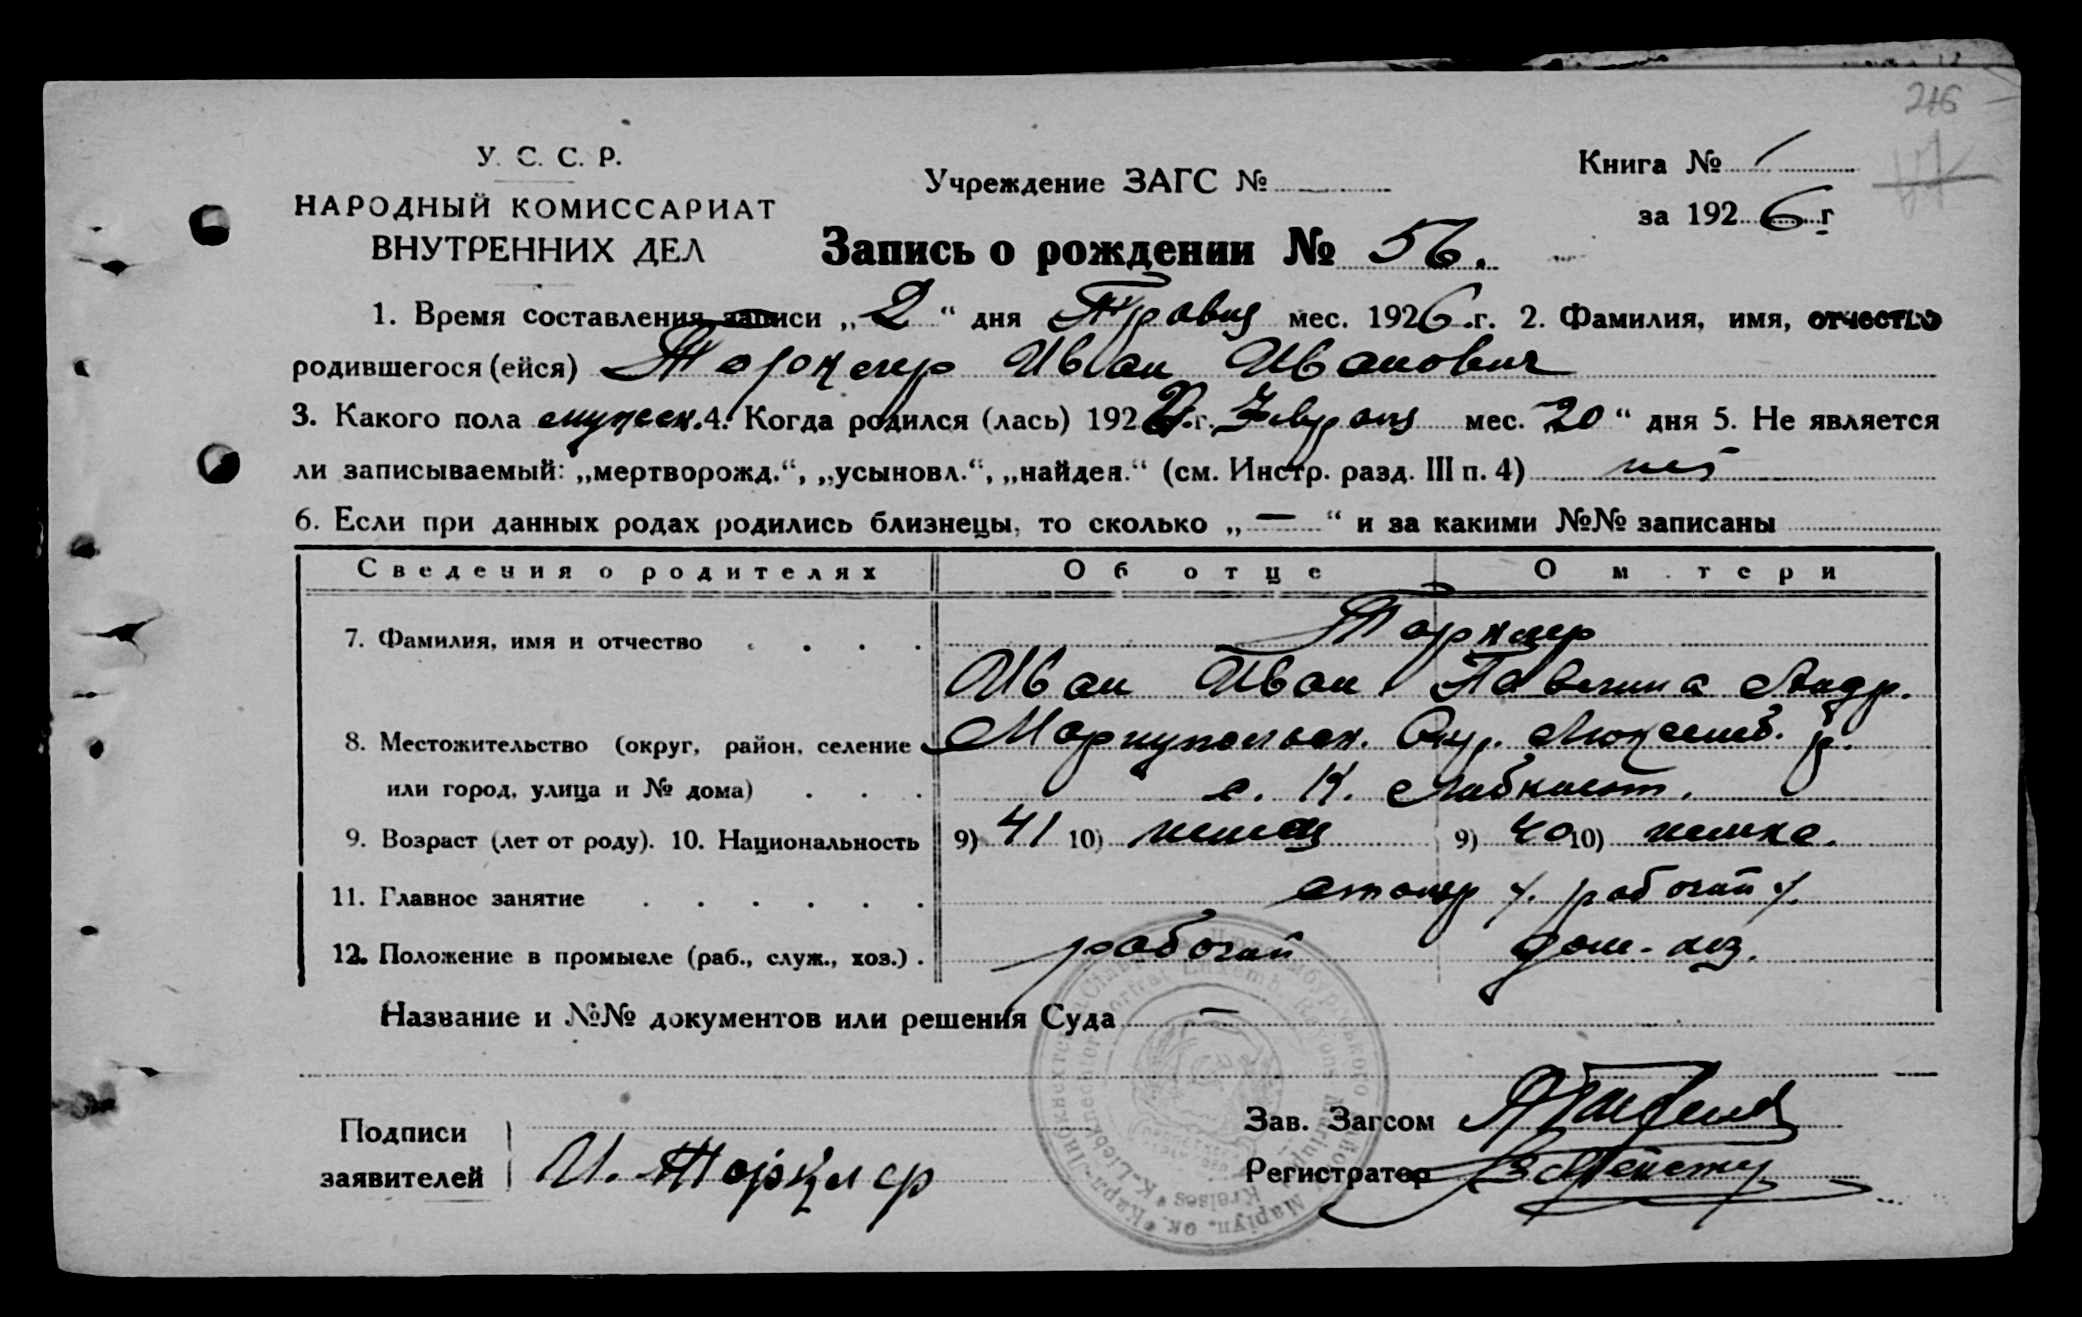 246
У. С. С. Р.
НАРОДНЫЙ КОМИССАРИАТ
ВНУТРЕННИХ ДЕЛ
Учреждение ЗАГС №
Книга № 1
за 1926 г
Запись о рождении № 56.
1. Время составления записи „2“ дня Травня мес. 1926 г. 2. Фамилия, имя, отчество
родившегося (ейся) Иван Иванович
3. Какого пола мужеск. 4. Когда родился (лась) 192 г. Февраля мес. 20“ дня 5. Не является
ли записываемый: „мертворожд.“, „усыновл.“, „найден.“ (см. Инстр. разд. III п. 4) нет
6. Если при данных родах родились близнецы, то сколько „—“ и за какими №№ записаны
Сведения о родителях Об отце О м тери
7. Фамилия, имя и отчество
Иван Иван Павлина Андр.
8. Местожительство (округ, район, селение Мариупольск. Окр. Люксемб. р.
или город, улица и № дома) с. К. Либкнехт.
9. Возраст (лет от роду). 10. Национальность 9) 41 10) немец 9) 40 10) немка.
11. Главное занятие столяр /. рабочий /.
12. Положение в промысле (раб., служ., хоз.) рабочий дом. хоз.
Название и №№ документов или решения Суда —
Подписи
заявителей И.
Зав. Загсом
Регистратор